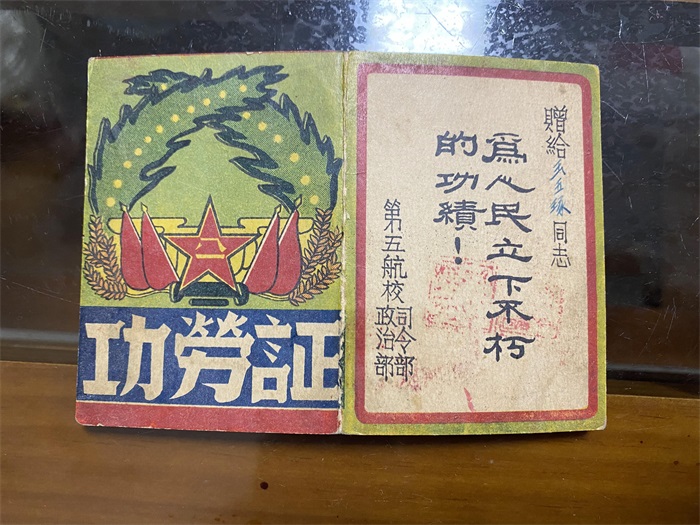 功勞証
八一
贈給 同志
為人民立下不朽
的功績！
第五航校司令部
政治部